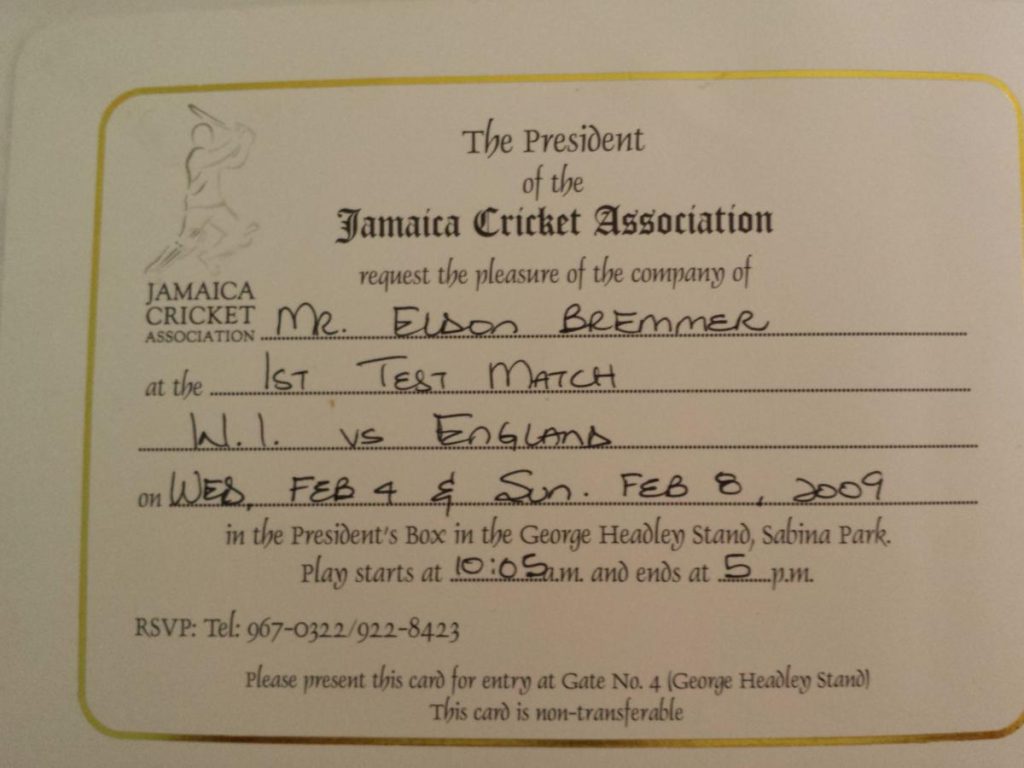 The President
of the
Jamaica Cricket Association
request the pleasure of the company of
JAMAICA
CRICKET
ASSOCIATION
MR. ELDON BREMMER
at the 1ST TEST MATCH
W.I. VS ENGLAND
on WED, FEB 4 & SUN. FEB 8, 2009
in the President's Box in the George Headley Stand, Sabina Park.
Play starts at 10:05 a.m. and ends at 5 p.m.
RSVP: Tel: 967-0322/922-8423
Please present this card for entry at Gate No. 4 (George Headley Stand)
This card is non-transferable